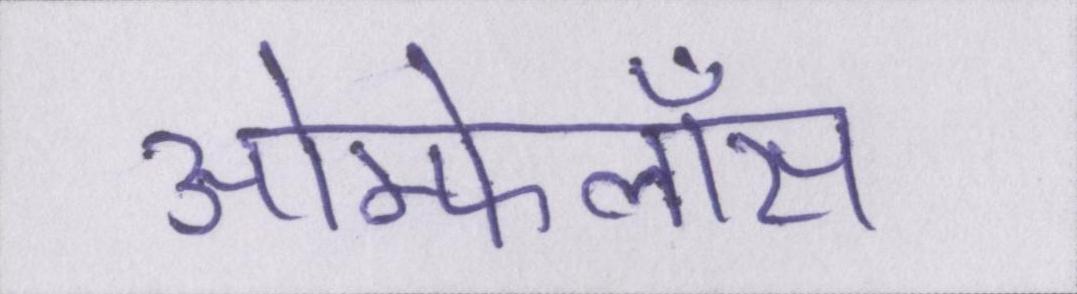 ओम्फेलॉस